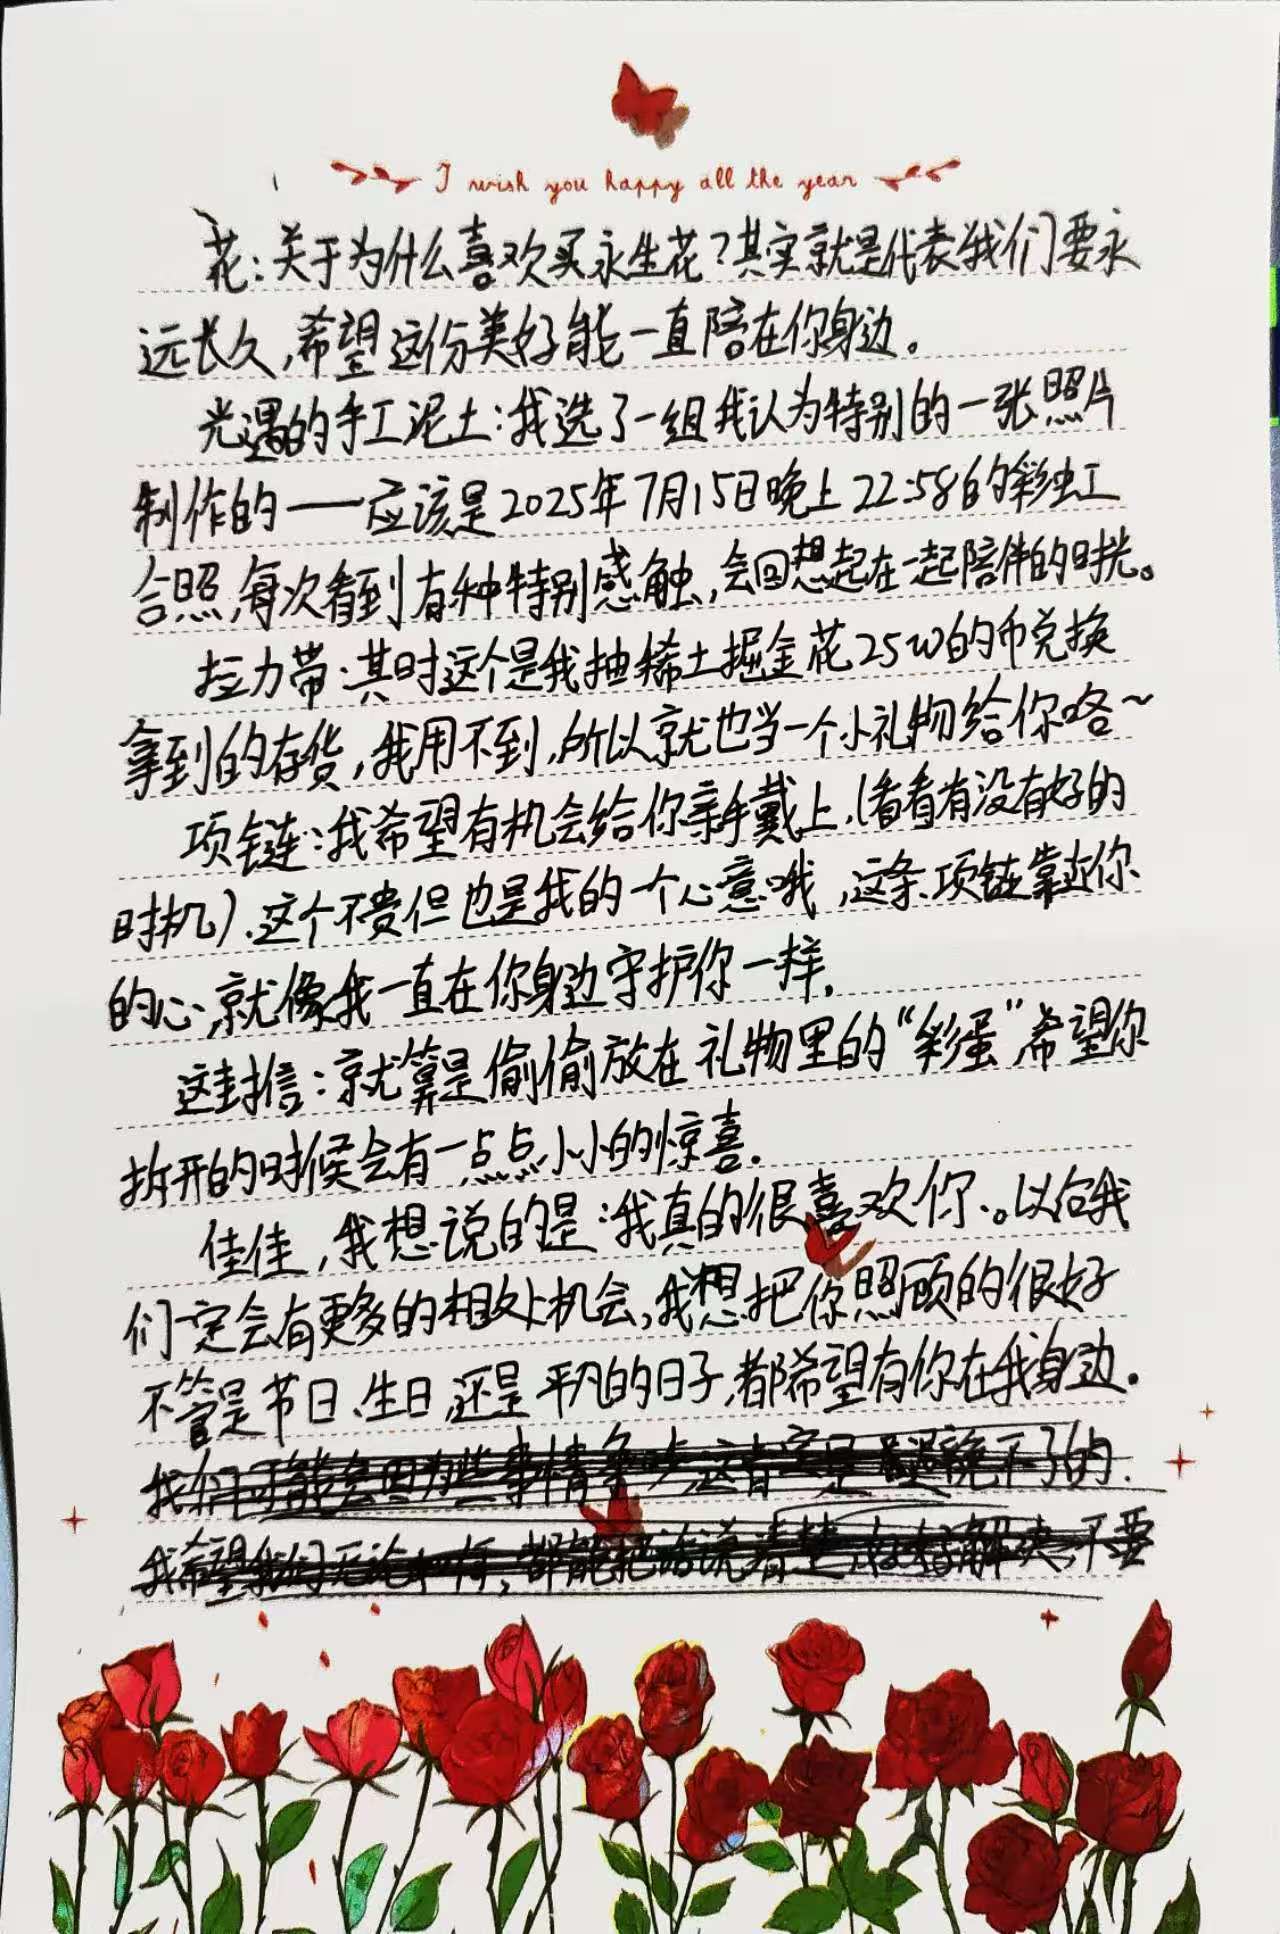 I wish you happy all the year
花:关于为什么喜欢买永生花?其实就是代表我们要永
远长久,希望这份美好能一直陪在你身边。
光遇的手工泥土:我选了一组我认为特别的一张照片
制作的——应该是2025年7月15日晚上22:58的彩虹
合照,每次看到有种特别感触,会回想起在一起陪伴的时光。
拉力带:其时这个是我抽稀土掘金花25w的币兑换
拿到的存货,我用不到,所以就也当一个小礼物给你咯~
项链:我希望有机会给你亲手戴上,(看看有没有好的
时机).这个不贵但也是我的一个心意哦,这条项链靠近你
的心,就像我一直在你身边守护你一样.
这封信:就算是偷偷放在礼物里的“彩蛋”,希望你
拆开的时候会有一点点小小的惊喜.
佳佳,我想说的是:我真的很喜欢你.。以后我
们一定会有更多的相处机会,我想把你照顾的很好
不管是节日、生日,还是平凡的日子,都希望有你在我身边.
我们可能会因为些事情争吵,这肯定是避免不了的.
我希望我们无论如何,都能把话说清楚,好好解决,不要